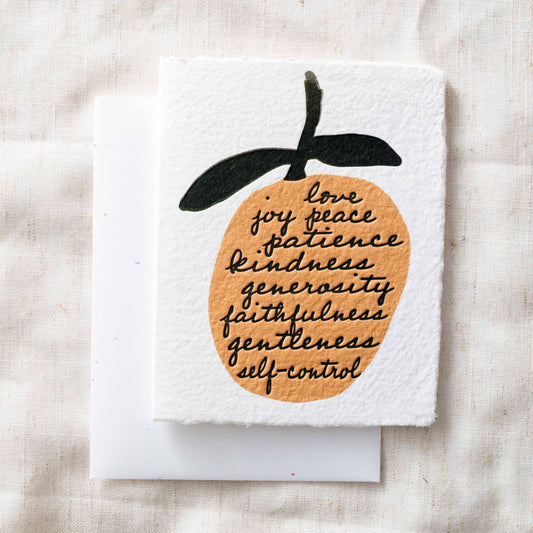 love
joy peace
patience
kindness
generosity
faithfulness
gentleness
self-control